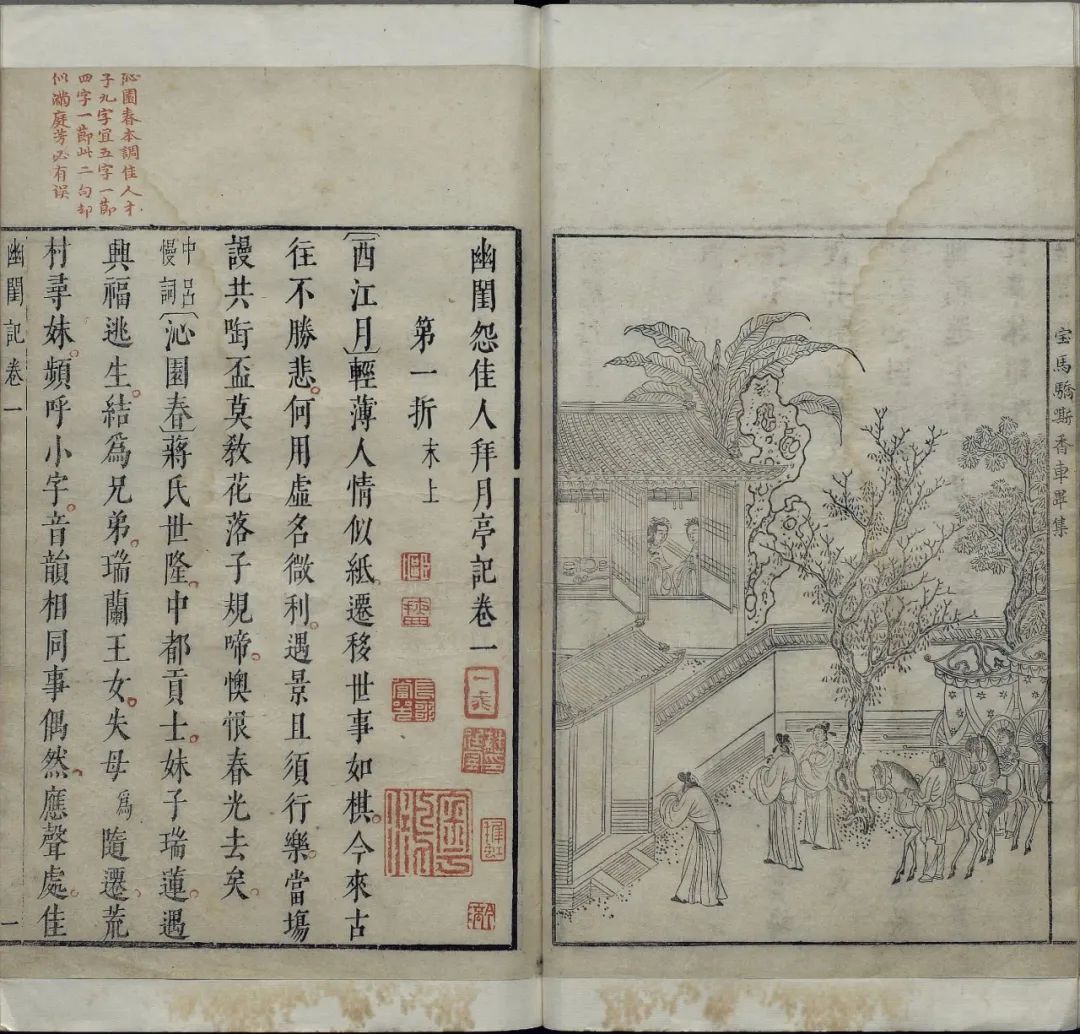 宝馬驕嘶香車畢集
沁園春本調佳人才
子九字宜五字一節
四字一節此二句却
似滿庭芳必有误
幽閨怨佳人拜月亭記卷一
第一折 末上
〔西江月〕輕薄人情似紙。遷移世事如棋。今來古
往不勝悲。何用虛名微利。遇景且須行樂。當塲
謾共啣盃莫教花落子規啼。懊恨春光去矣。
中呂慢詞〔沁園春〕蔣氏世隆。中都貢士。妹子瑞蓮。遇
興福逃生。結爲兄弟。瑞蘭王女。失母爲隨遷。荒
村尋妹。頻呼小字。音韻相同事偶然。應聲處。佳
幽閨記卷一 一